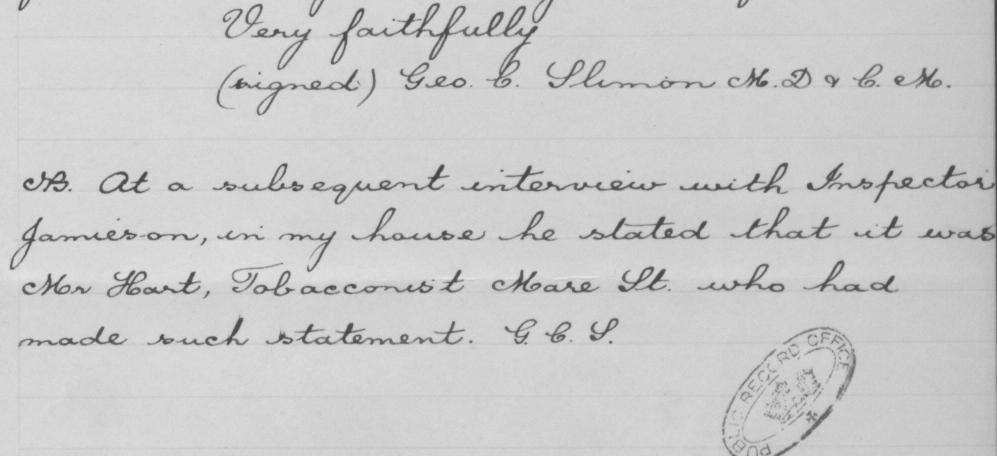 Very faithfully
(signed) Geo. C. Slimon M.D & C. M.
NB. At a subsequent interview with Inspector
Jamieson, in my house he stated that it was
Mr Hart, Tobacconist Mare St. who had
made such statement. G. C. S.
PUBLIC RECORD OFFICE